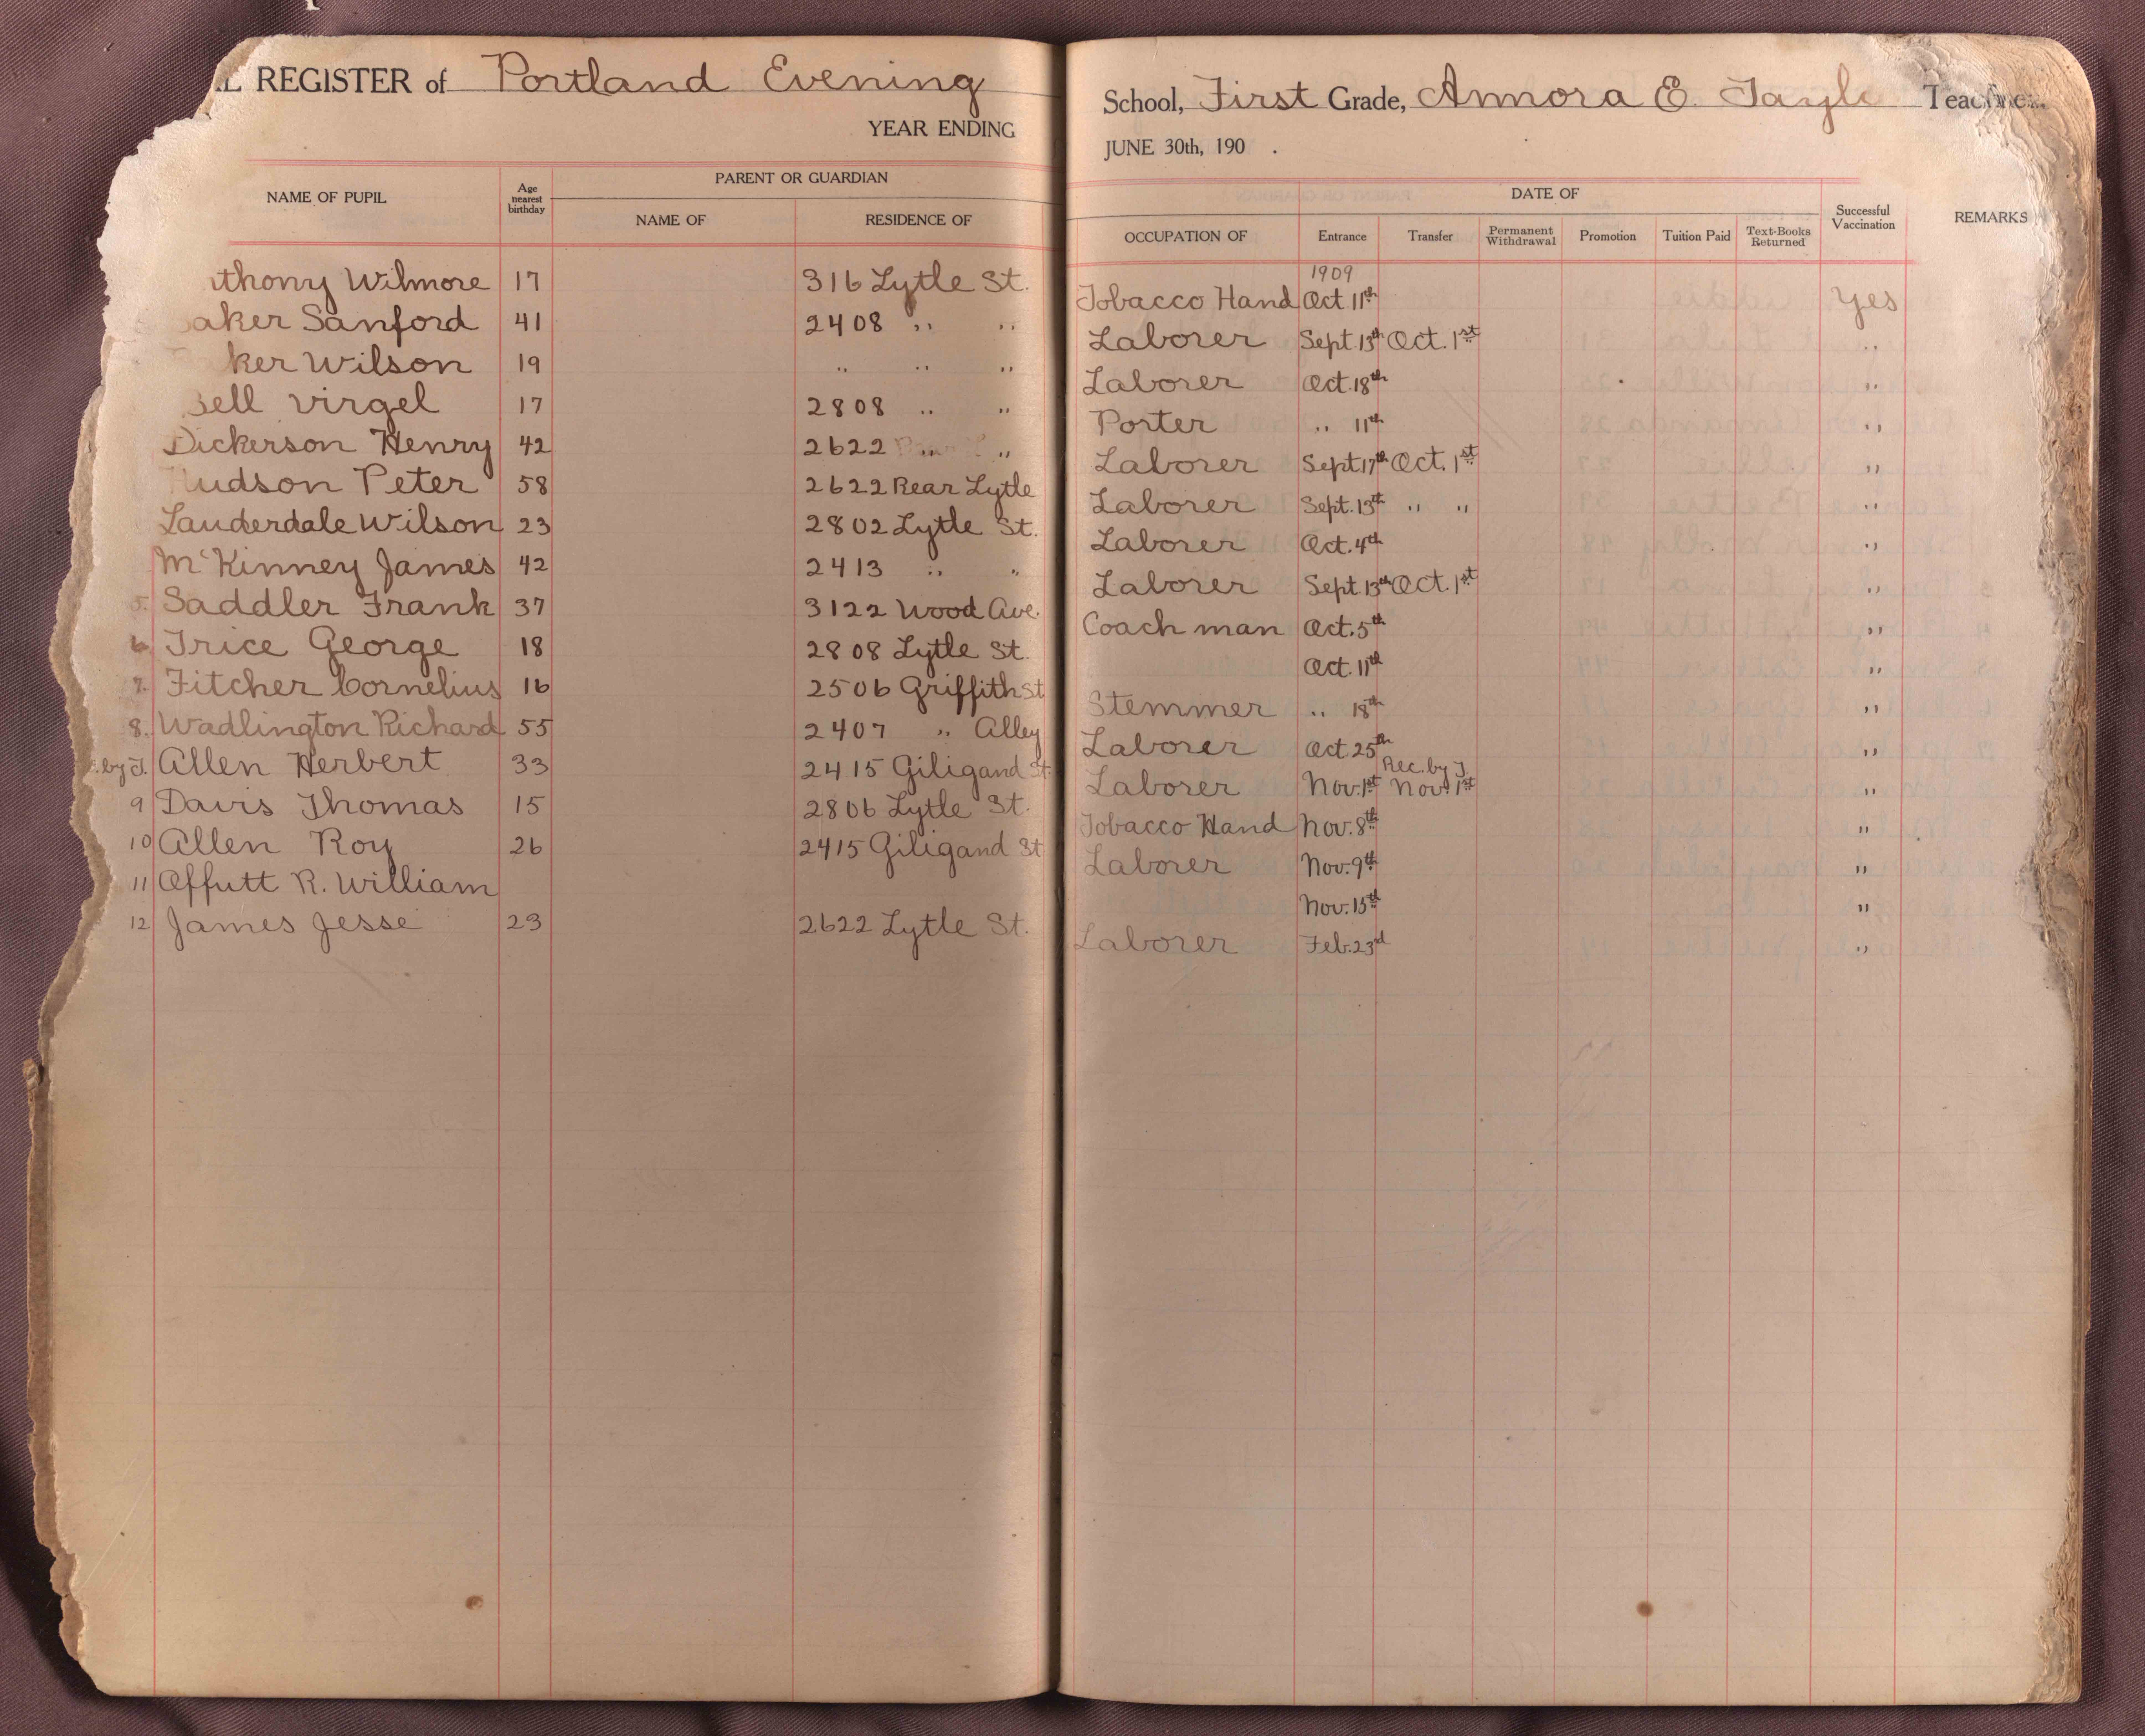 REGISTER of Portland Evening School, First Grade, Annora E. Tayl Teacher
YEAR ENDING JUNE 30th, 190 .
NAME OF PUPIL Age nearest birthday PARENT OR GUARDIAN NAME OF RESIDENCE OF OCCUPATION OF DATE OF Entrance Transfer Permanent Withdrawal Promotion Tuition Paid Text-Books Returned Successful Vaccination REMARKS
1909
thony Wilmore 17 316 Lytle St. Tobacco Hand Oct. 11th Yes
aker Sanford 41 2408 " " Laborer Sept. 13th Oct. 1st "
ker Wilson 19 " " " Laborer Oct. 18th "
Bell Virgel 17 2808 " " Porter " 11th "
Dickerson Henry 42 2622 " " Laborer Sept. 17th Oct. 1st "
Hudson Peter 58 2622 Rear Lytle Laborer Sept. 13th " " "
Lauderdale Wilson 23 2802 Lytle St. Laborer Oct. 4th "
McKinney James 42 2413 " " Laborer Sept. 13th Oct. 1st "
5. Saddler Frank 37 3122 Wood Ave. Coach man Oct. 5th "
6. Trice George 18 2808 Lytle St. Oct. 11th "
7. Fitcher Cornelius 16 2506 Griffith St. Stemmer " 18th "
8. Wadlington Richard 55 2407 " Alley Laborer Oct. 25th "
by T. Allen Herbert 33 2415 Giligand St. Laborer Nov. 1st Rec. by T Nov. 1st "
9 Davis Thomas 15 2806 Lytle St. Tobacco Hand Nov. 8th "
10 Allen Roy 26 2415 Giligand St Laborer Nov. 9th "
11 Offutt R. William Nov. 15th "
12 James Jesse 23 2622 Lytle St. Laborer Feb. 23rd "